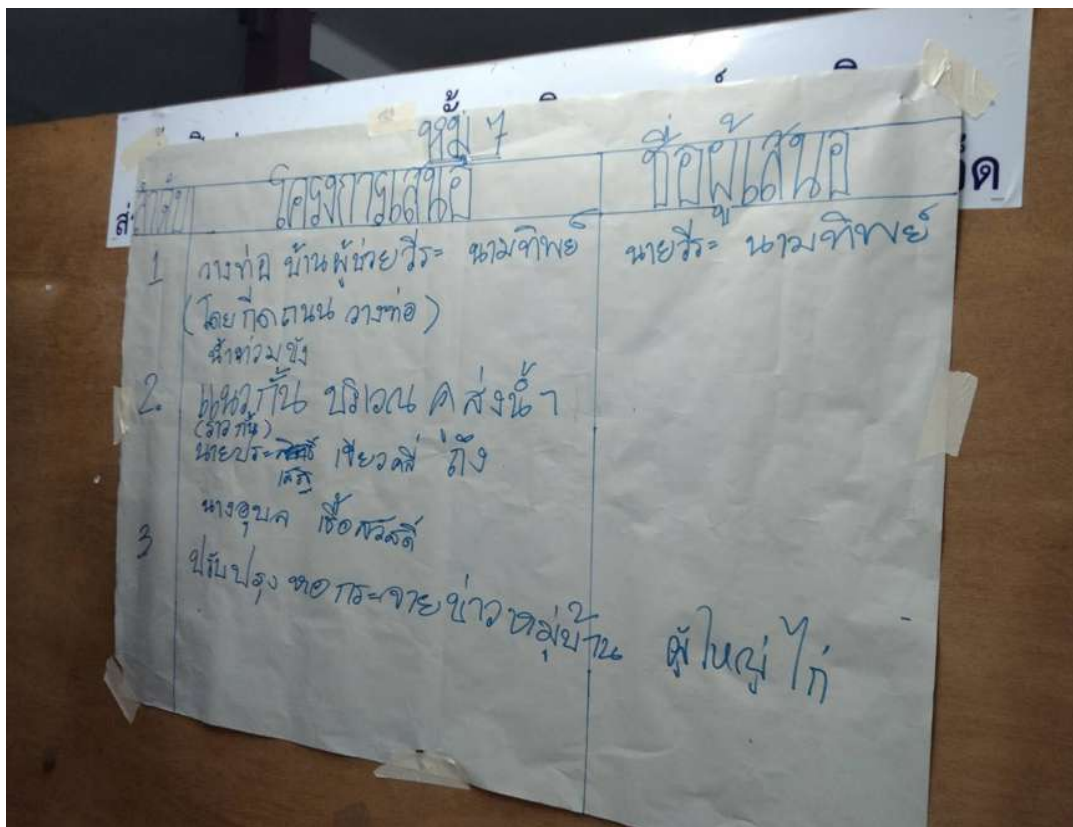 หมู่ 7
ลำดับ โครงการเสนอ ชื่อผู้เสนอ
1 วางท่อ บ้านผู้ช่วยวีระ นามทิพย์ นายวีระ นามทิพย์
(โดยกีดถนน วางท่อ)
น้ำท่วมขัง
2. แนวกั้น บริเวณ ค ส่งน้ำ
(ราวกั้น)
นายประเสริฐ เขียวคลี่ ถึง
นางอุบล เชื้อสวัสดิ์
3 ปรับปรุง หอกระจายข่าวหมู่บ้าน ผู้ใหญ่ ไก่